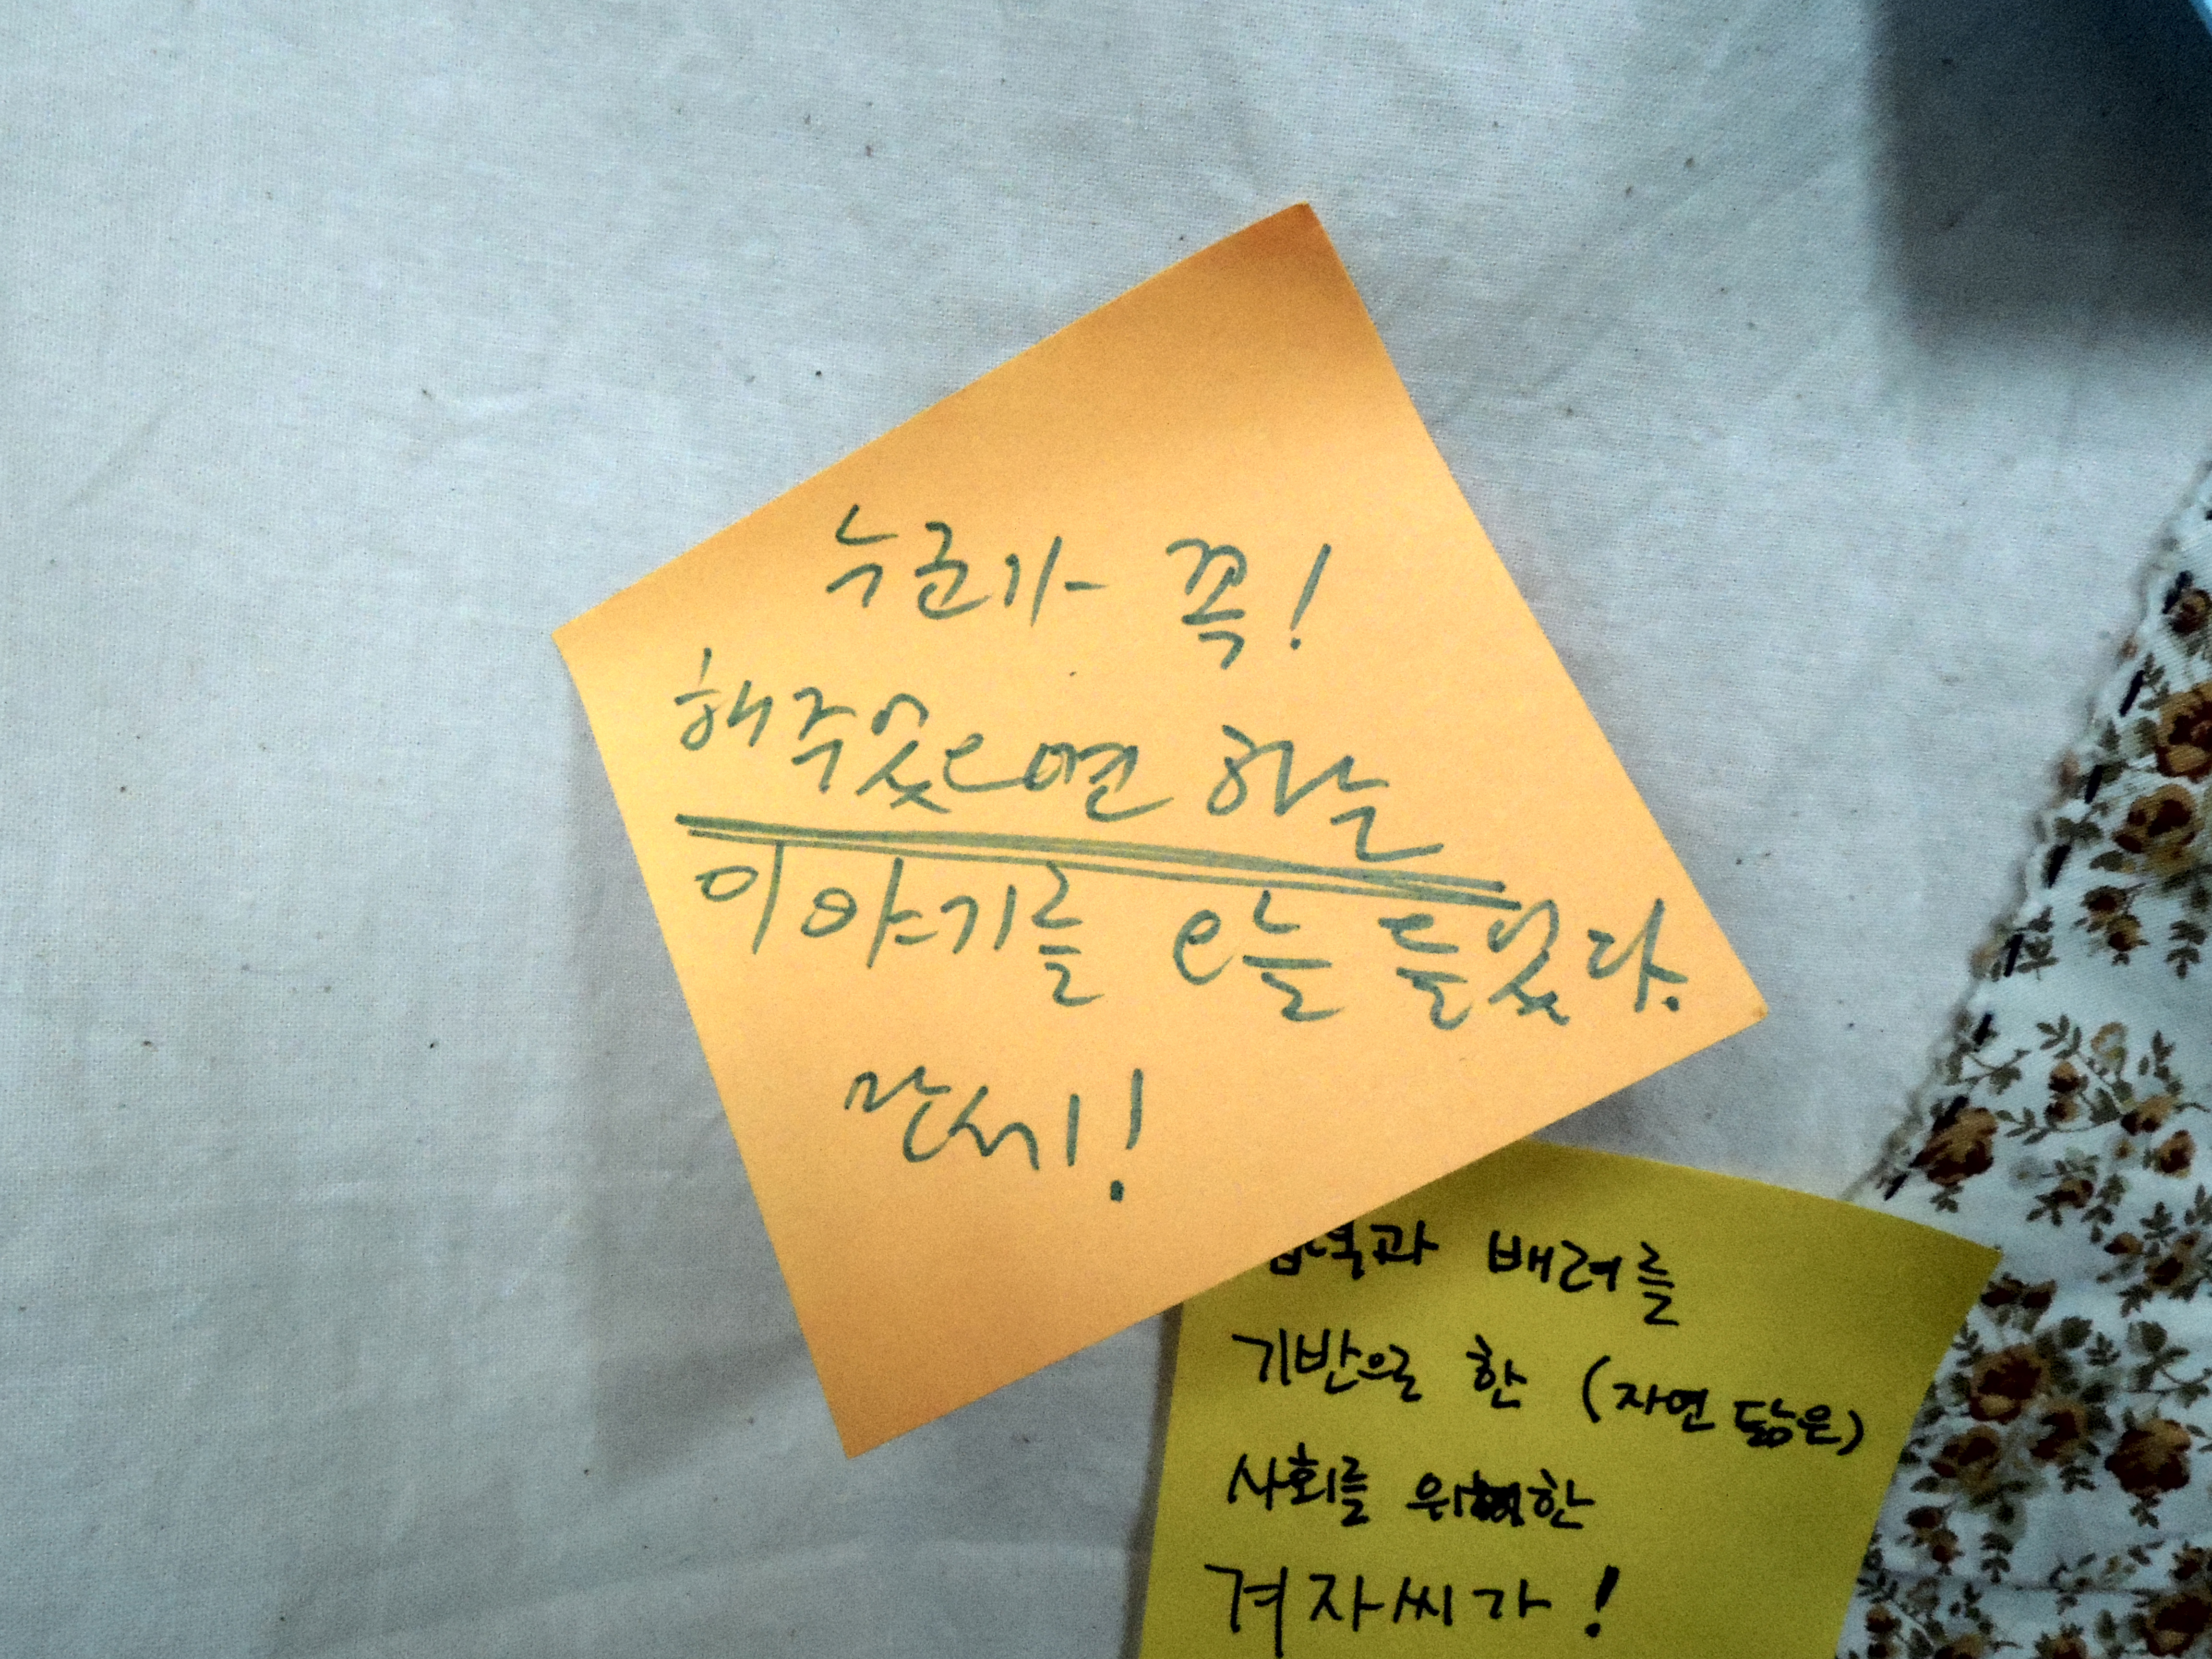 누군가 꼭!
해주었으면 하는
이야기를 오늘 들었다.
만세!
배려를
기반으로 한 (자연 닮은)
사회를 위한
겨자씨가!